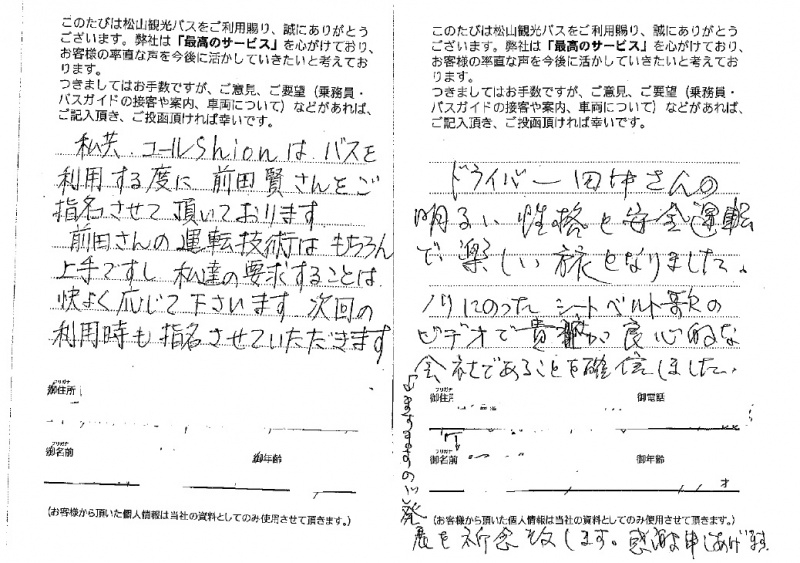 このたびは松山観光バスをご利用賜り、誠にありがとう
ございます。弊社は「最高のサービス」を心がけており、
お客様の率直な声を今後に活かしていきたいと考えてお
ります。
つきましてはお手数ですが、ご意見、ご要望（乗務員・
バスガイドの接客や案内、車両について）などがあれば、
ご記入頂き、ご投函頂ければ幸いです。
私共、コールShionは バスを
利用する度に 前田賢さんをご
指名させて頂いております
前田さんの運転技術はもちろん
上手ですし 私達の要求することは
快よく応じて下さいます 次回の
利用時も指名させていただきます
フリガナ
御住所
フリガナ
御名前
御年齢
（お客様から頂いた個人情報は当社の資料としてのみ使用させて頂きます。）
このたびは松山観光バスをご利用賜り、誠にありがとう
ございます。弊社は「最高のサービス」を心がけており、
お客様の率直な声を今後に活かしていきたいと考えてお
ります。
つきましてはお手数ですが、ご意見、ご要望（乗務員・
バスガイドの接客や案内、車両について）などがあれば、
ご記入頂き、ご投函頂ければ幸いです。
ドライバー田中さんの
明るい性格と安全運転
で楽しい旅となりました。
ノリにのった シートベルト歌の
ビデオで貴社が良心的な
会社であることを確信しました。
フリガナ
御住所
御電話
フリガナ
御名前
御年齢
才
（お客様から頂いた個人情報は当社の資料としてのみ使用させて頂きます。）
ますますのご発
展を祈念致します。感謝申しあげます